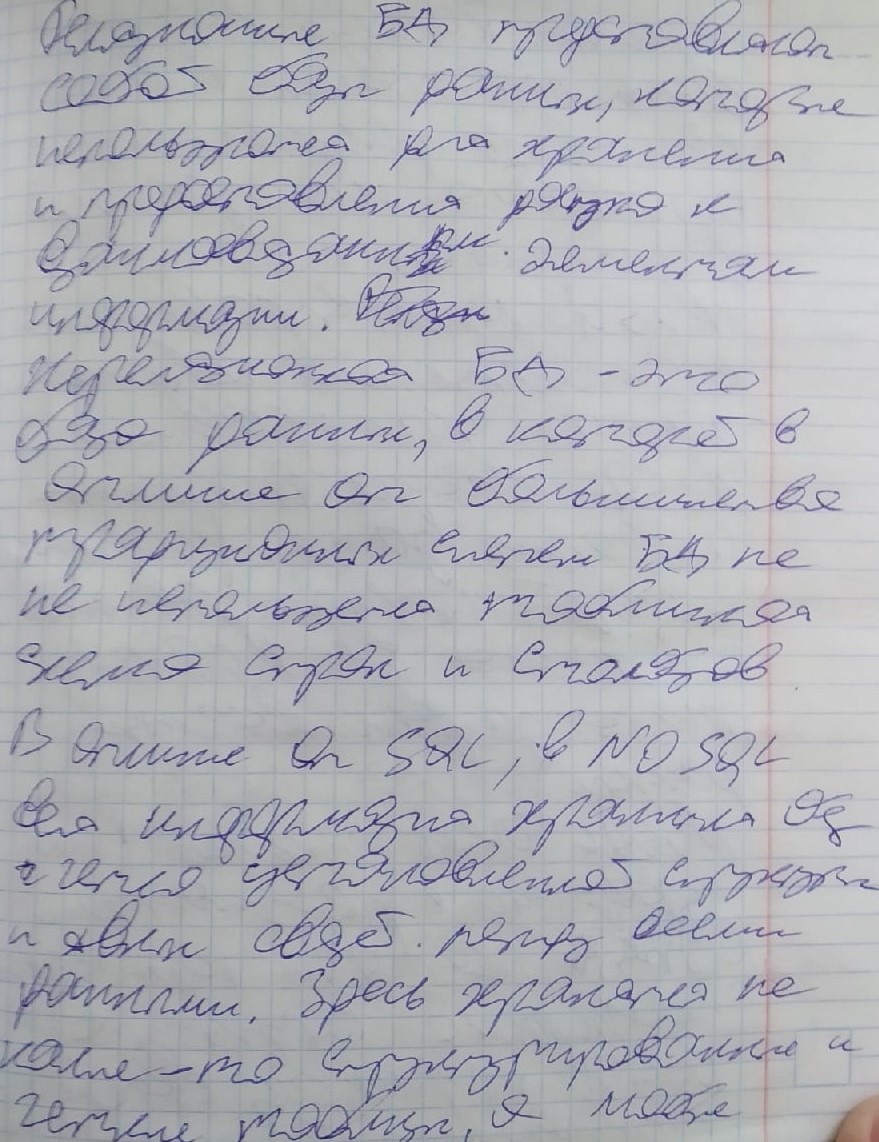 Реляционные БД представляют
собой базы данных, которые
используются для хранения
и предоставления доступа к
взаимосвязанным элементам
информации.
Нереляционная БД - это
база данных, в которой в
отличие от большинства
традиционных систем БД не
не используется табличная
схема строк и столбцов
В отличие от SQL, в NO SQL
вся информация хранится без
четко установленной структуры
и явных связей между всеми
данными. Здесь хранятся не
какие-то структурированные и
четкие таблицы, а любые